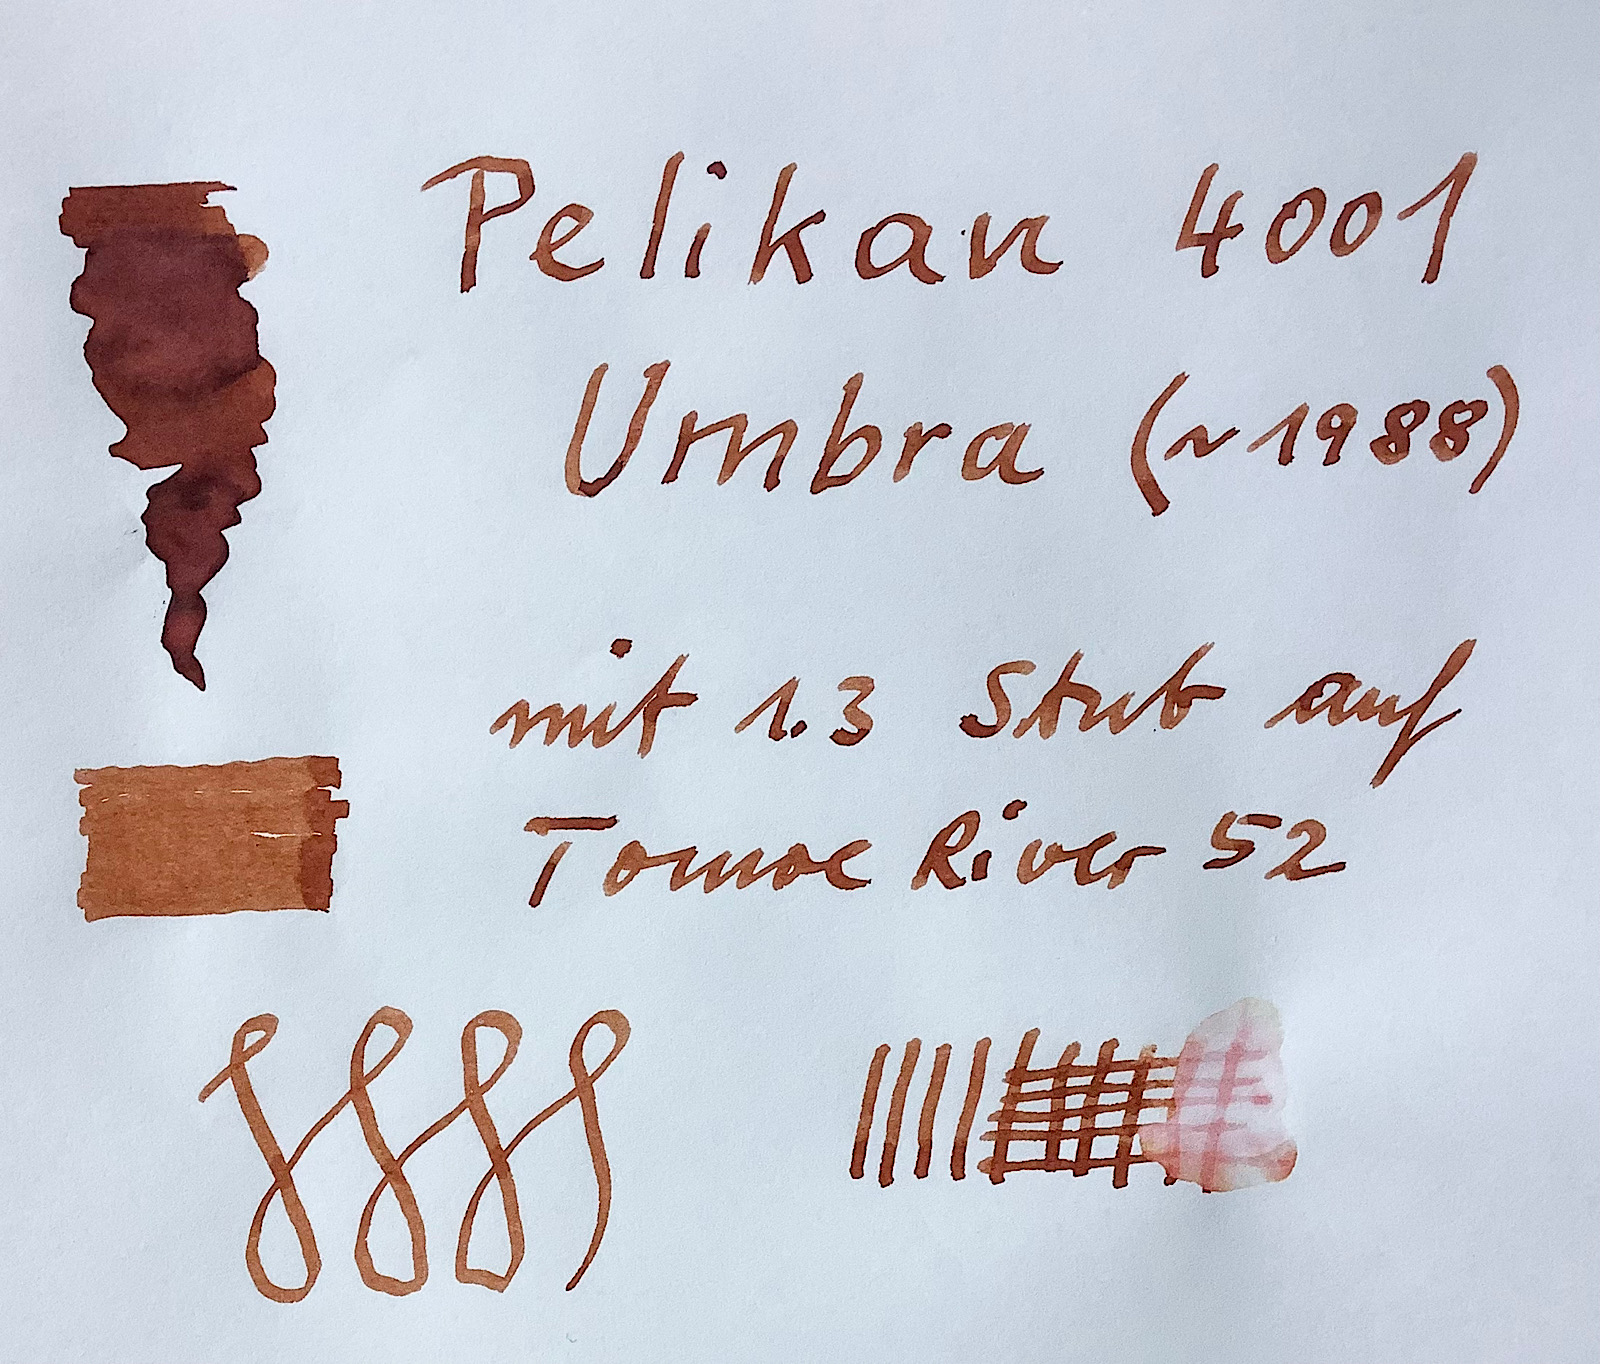 Pelikan 4001
Umbra (~1988)
mit 1.3 Stub auf
Tomoe River 52